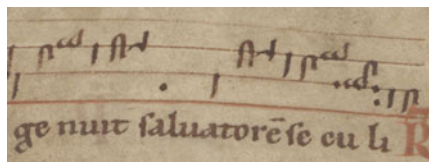 ge nuit saluatorē se cu li R